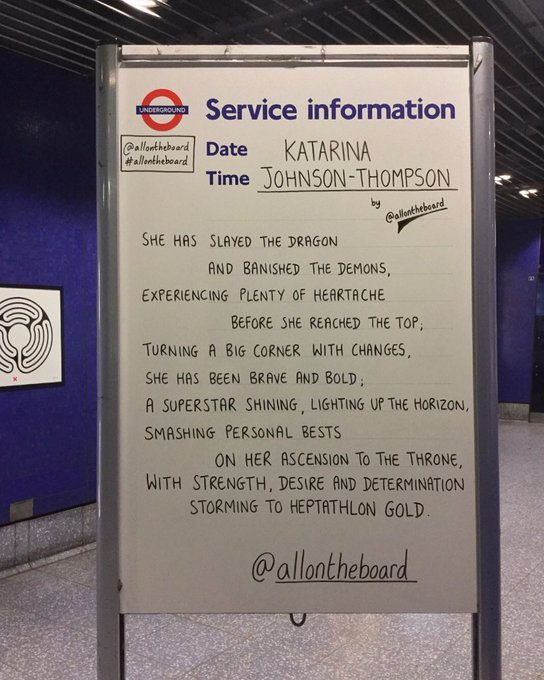 UNDERGROUND
Service information
@allontheboard
#allontheboard
Date KATARINA
Time JOHNSON-THOMPSON
by @allontheboard
SHE HAS SLAYED THE DRAGON
AND BANISHED THE DEMONS,
EXPERIENCING PLENTY OF HEARTACHE
BEFORE SHE REACHED THE TOP;
TURNING A BIG CORNER WITH CHANGES,
SHE HAS BEEN BRAVE AND BOLD;
A SUPERSTAR SHINING, LIGHTING UP THE HORIZON,
SMASHING PERSONAL BESTS
ON HER ASCENSION TO THE THRONE,
WITH STRENGTH, DESIRE AND DETERMINATION
STORMING TO HEPTATHLON GOLD.
@allontheboard